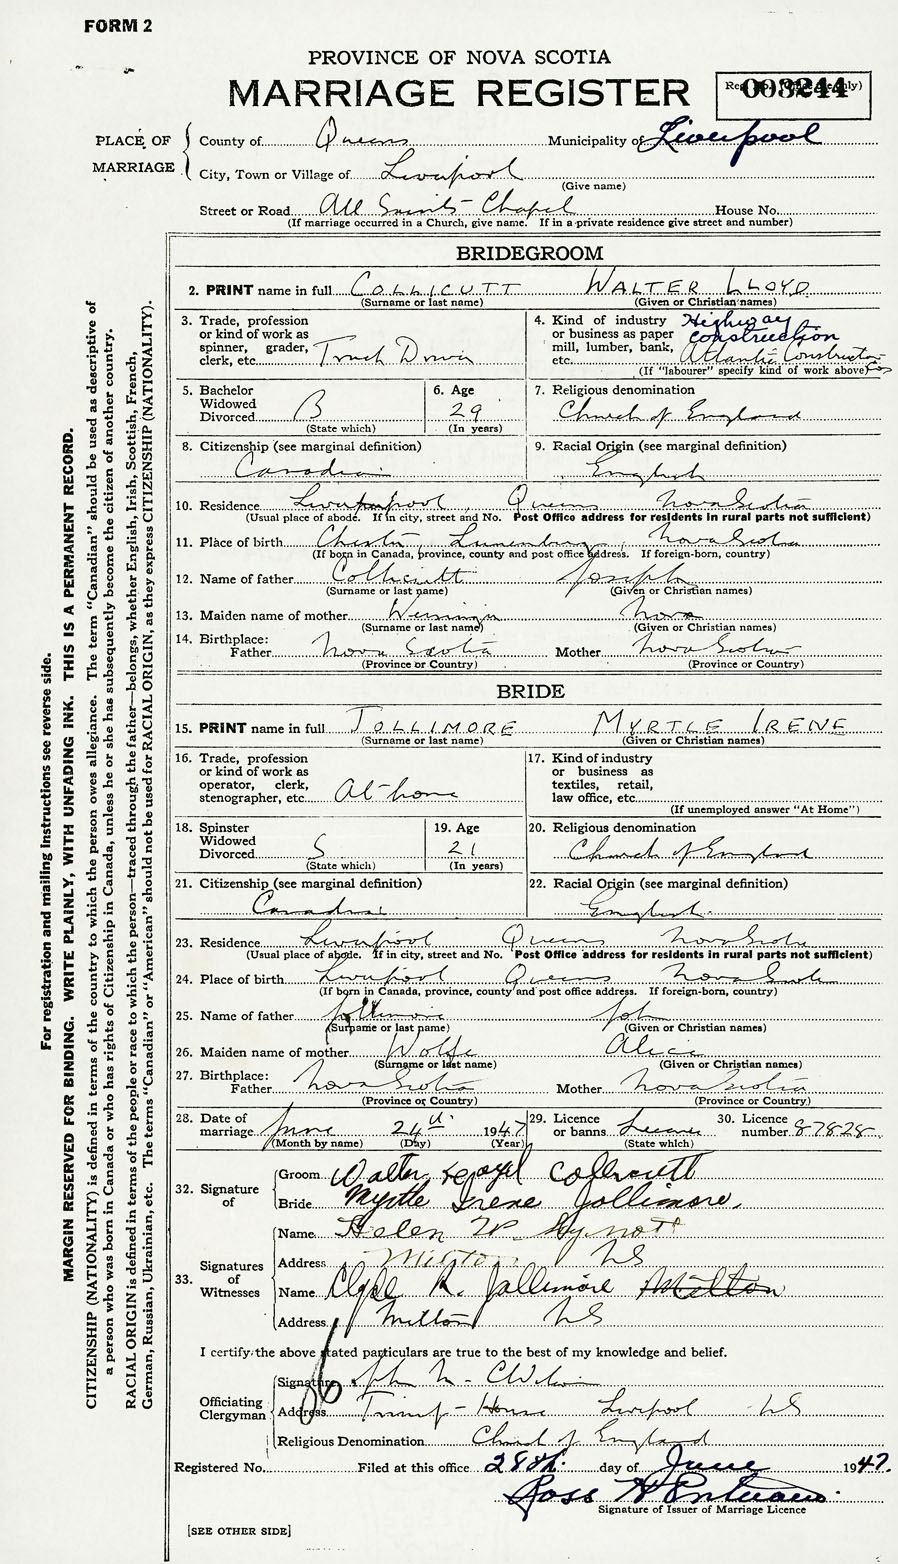 FORM 2
PROVINCE OF NOVA SCOTIA
MARRIAGE REGISTER
003244
PLACE OF MARRIAGE
County of Queens Municipality of Liverpool
City, Town or Village of Liverpool
(Give name)
Street or Road All Saints Chapel House No.
(If marriage occurred in a Church, give name. If in a private residence give street and number)
BRIDEGROOM
2. PRINT name in full COLLICUTT WALTER LLOYD
(Surname or last name) (Given or Christian names)
3. Trade, profession
or kind of work as
spinner, grader,
clerk, etc. Truck Driver
4. Kind of industry Highway
or business as paper construction
mill, lumber, bank,
etc. Atlantic Construction Co
(If "labourer" specify kind of work above)
5. Bachelor
Widowed
Divorced B
(State which)
6. Age
29
(In years)
7. Religious denomination
Church of England
8. Citizenship (see marginal definition)
Canadian
9. Racial Origin (see marginal definition)
English
10. Residence Liverpool, Queens Nova Scotia
(Usual place of abode. If in city, street and No. Post Office address for residents in rural parts not sufficient)
11. Place of birth Chester Lunenburg Nova Scotia
(If born in Canada, province, county and post office address. If foreign-born, country)
12. Name of father Collicutt Joseph
(Surname or last name) (Given or Christian names)
13. Maiden name of mother Nora
(Surname or last name) (Given or Christian names)
14. Birthplace:
Father Nova Scotia Mother Nova Scotia
(Province or Country) (Province or Country)
BRIDE
15. PRINT name in full JOLLIMORE MYRTLE IRENE
(Surname or last name) (Given or Christian names)
16. Trade, profession
or kind of work as
operator, clerk,
stenographer, etc. At home
17. Kind of industry
or business as
textiles, retail,
law office, etc.
(If unemployed answer "At Home")
18. Spinster
Widowed
Divorced S
(State which)
19. Age
21
(In years)
20. Religious denomination
Church of England
21. Citizenship (see marginal definition)
Canadian
22. Racial Origin (see marginal definition)
English
23. Residence Liverpool Queens Nova Scotia
(Usual place of abode. If in city, street and No. Post Office address for residents in rural parts not sufficient)
24. Place of birth Liverpool Queens Nova Scotia
(If born in Canada, province, county and post office address. If foreign-born, country)
25. Name of father Jollimore John
(Surname or last name) (Given or Christian names)
26. Maiden name of mother Wolfe Alice
(Surname or last name) (Given or Christian names)
27. Birthplace:
Father Nova Scotia Mother Nova Scotia
(Province or Country) (Province or Country)
28. Date of
marriage June 24th 1947
(Month by name) (Day) (Year)
29. Licence
or banns License
(State which)
30. Licence
number 87828
32. Signature of
Groom Walter Lloyd Collicutt
Bride Myrtle Irene Jollimore.
33. Signatures of Witnesses
Name Helen
Address Milton NS
Name Clyde R. Jollimore Milton
Address Milton NS
I certify the above stated particulars are true to the best of my knowledge and belief.
Officiating Clergyman
Signature
Address House Liverpool NS
Religious Denomination Church of England
Registered No. Filed at this office 28th. day of June 1947.
Ross
Signature of Issuer of Marriage Licence
[SEE OTHER SIDE]
For registration and mailing instructions see reverse side.
MARGIN RESERVED FOR BINDING. WRITE PLAINLY, WITH UNFADING INK. THIS IS A PERMANENT RECORD.
CITIZENSHIP (NATIONALITY) is defined in terms of the country to which the person owes allegiance. The term "Canadian" should be used as descriptive of
a person who was born in Canada or who has rights of Citizenship in Canada, unless he or she has subsequently become the citizen of another country.
RACIAL ORIGIN is defined in terms of the people or race to which the person—traced through the father—belongs, whether English, Irish, Scottish, French,
German, Russian, Ukrainian, etc. The terms "Canadian" or "American" should not be used for RACIAL ORIGIN, as they express CITIZENSHIP (NATIONALITY).